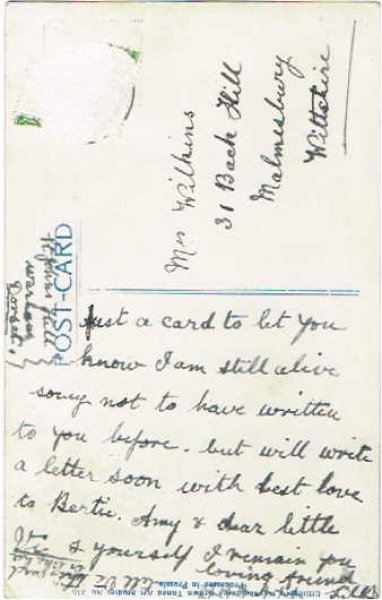 POST-CARD
Mrs Wilkins
31 Back Hill
Malmesbury
Wiltshire
Wareham
Dorset.
Just a card to let you
know I am still alive
sorry not to have written
to you before. but will write
a letter soon with best love
to Bertie. Amy & dear little
& yourself I remain you
loving